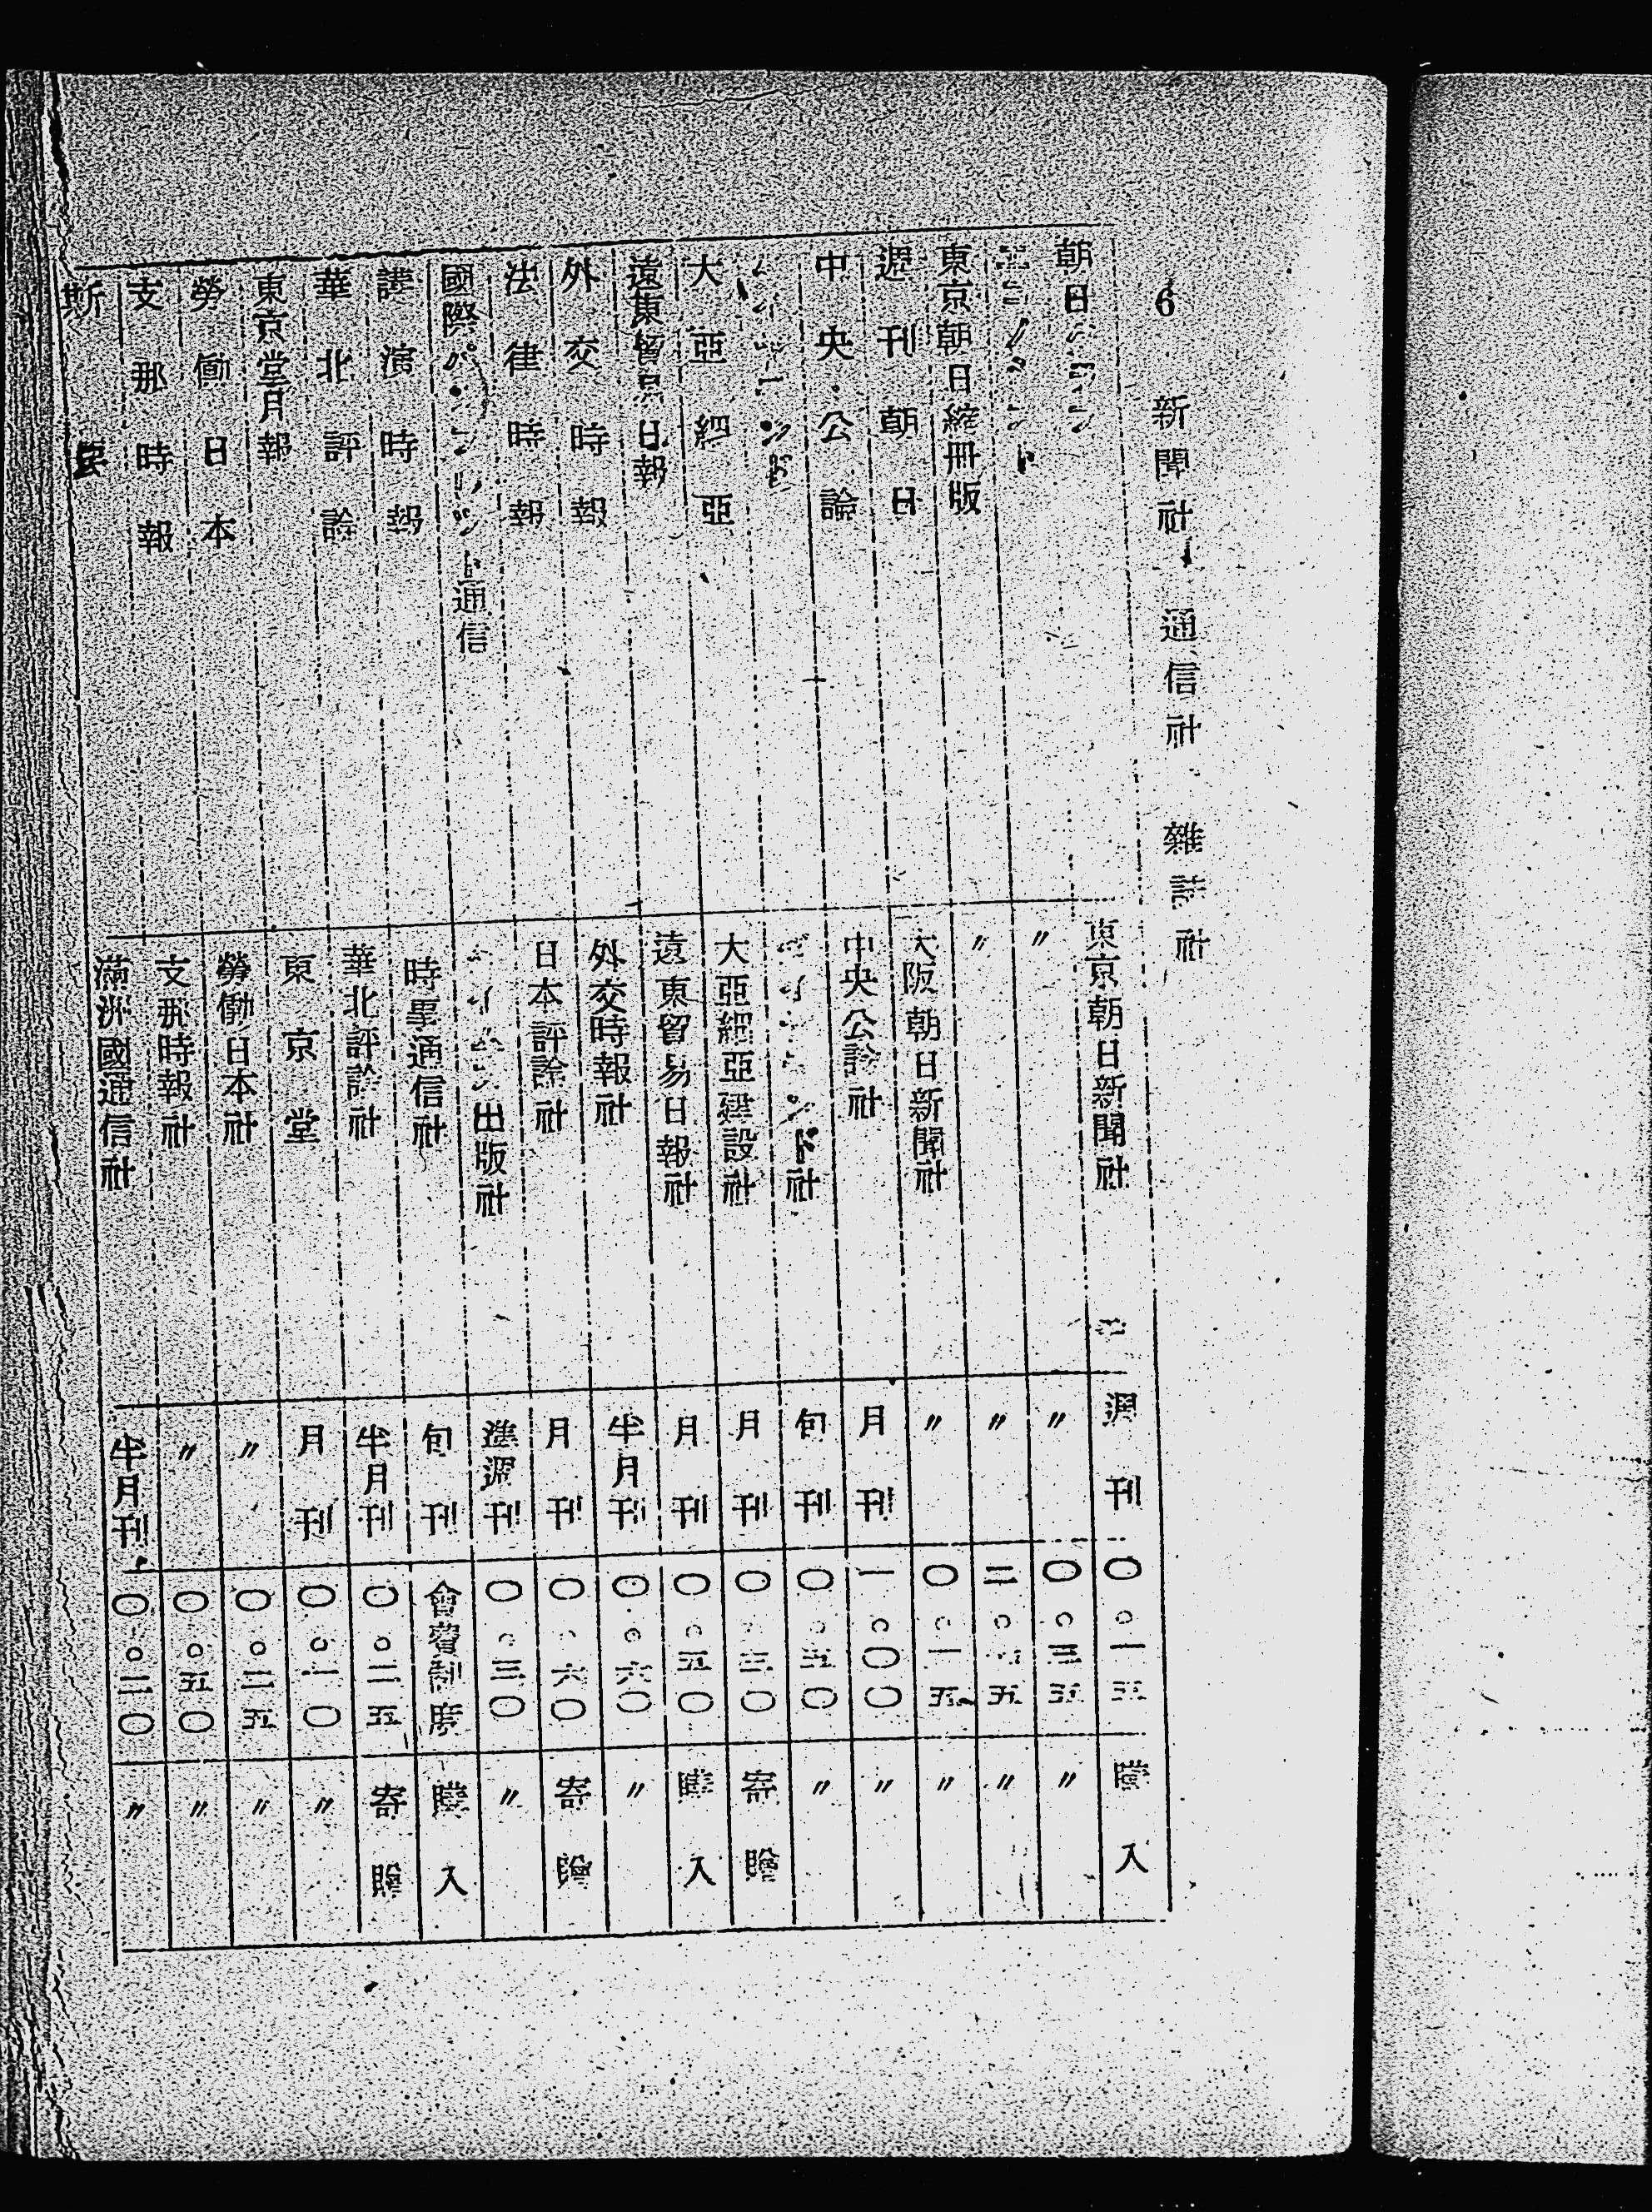 6 新聞社、通信社、雜誌社
朝日 東京朝日新聞社 週刊 〇。一五 購入
〃 〃 〇。三五 〃
東京朝日縮冊版 〃 〃 二。五 〃
週刊朝日 大阪朝日新聞社 〃 〇。一五 〃
中央公論 中央公論社 月刊 一。〇〇 〃
社 旬刊 〇。五〇 〃
大亞細亞 大亞細亞建設社 月刊 〇。三〇 寄贈
遠東貿易日報 遠東貿易日報社 月刊 〇。五〇 購入
外交時報 外交時報社 半月刊 〇。六〇 〃
法律時報 日本評論社 月刊 〇。六〇 寄贈
國際パンフレット通信 出版社 進週刊 〇。三〇 〃
講演時報 時事通信社 旬刊 會費制度 購入
華北評論 華北評論社 半月刊 〇。二五 寄贈
東京堂月報 東京堂 月刊 〇。一〇 〃
勞働日本 勞働日本社 〃 〇。二五 〃
支那時報 支那時報社 〃 〇。五〇 〃
斯民 滿洲國通信社 半月刊 〇。二〇 〃